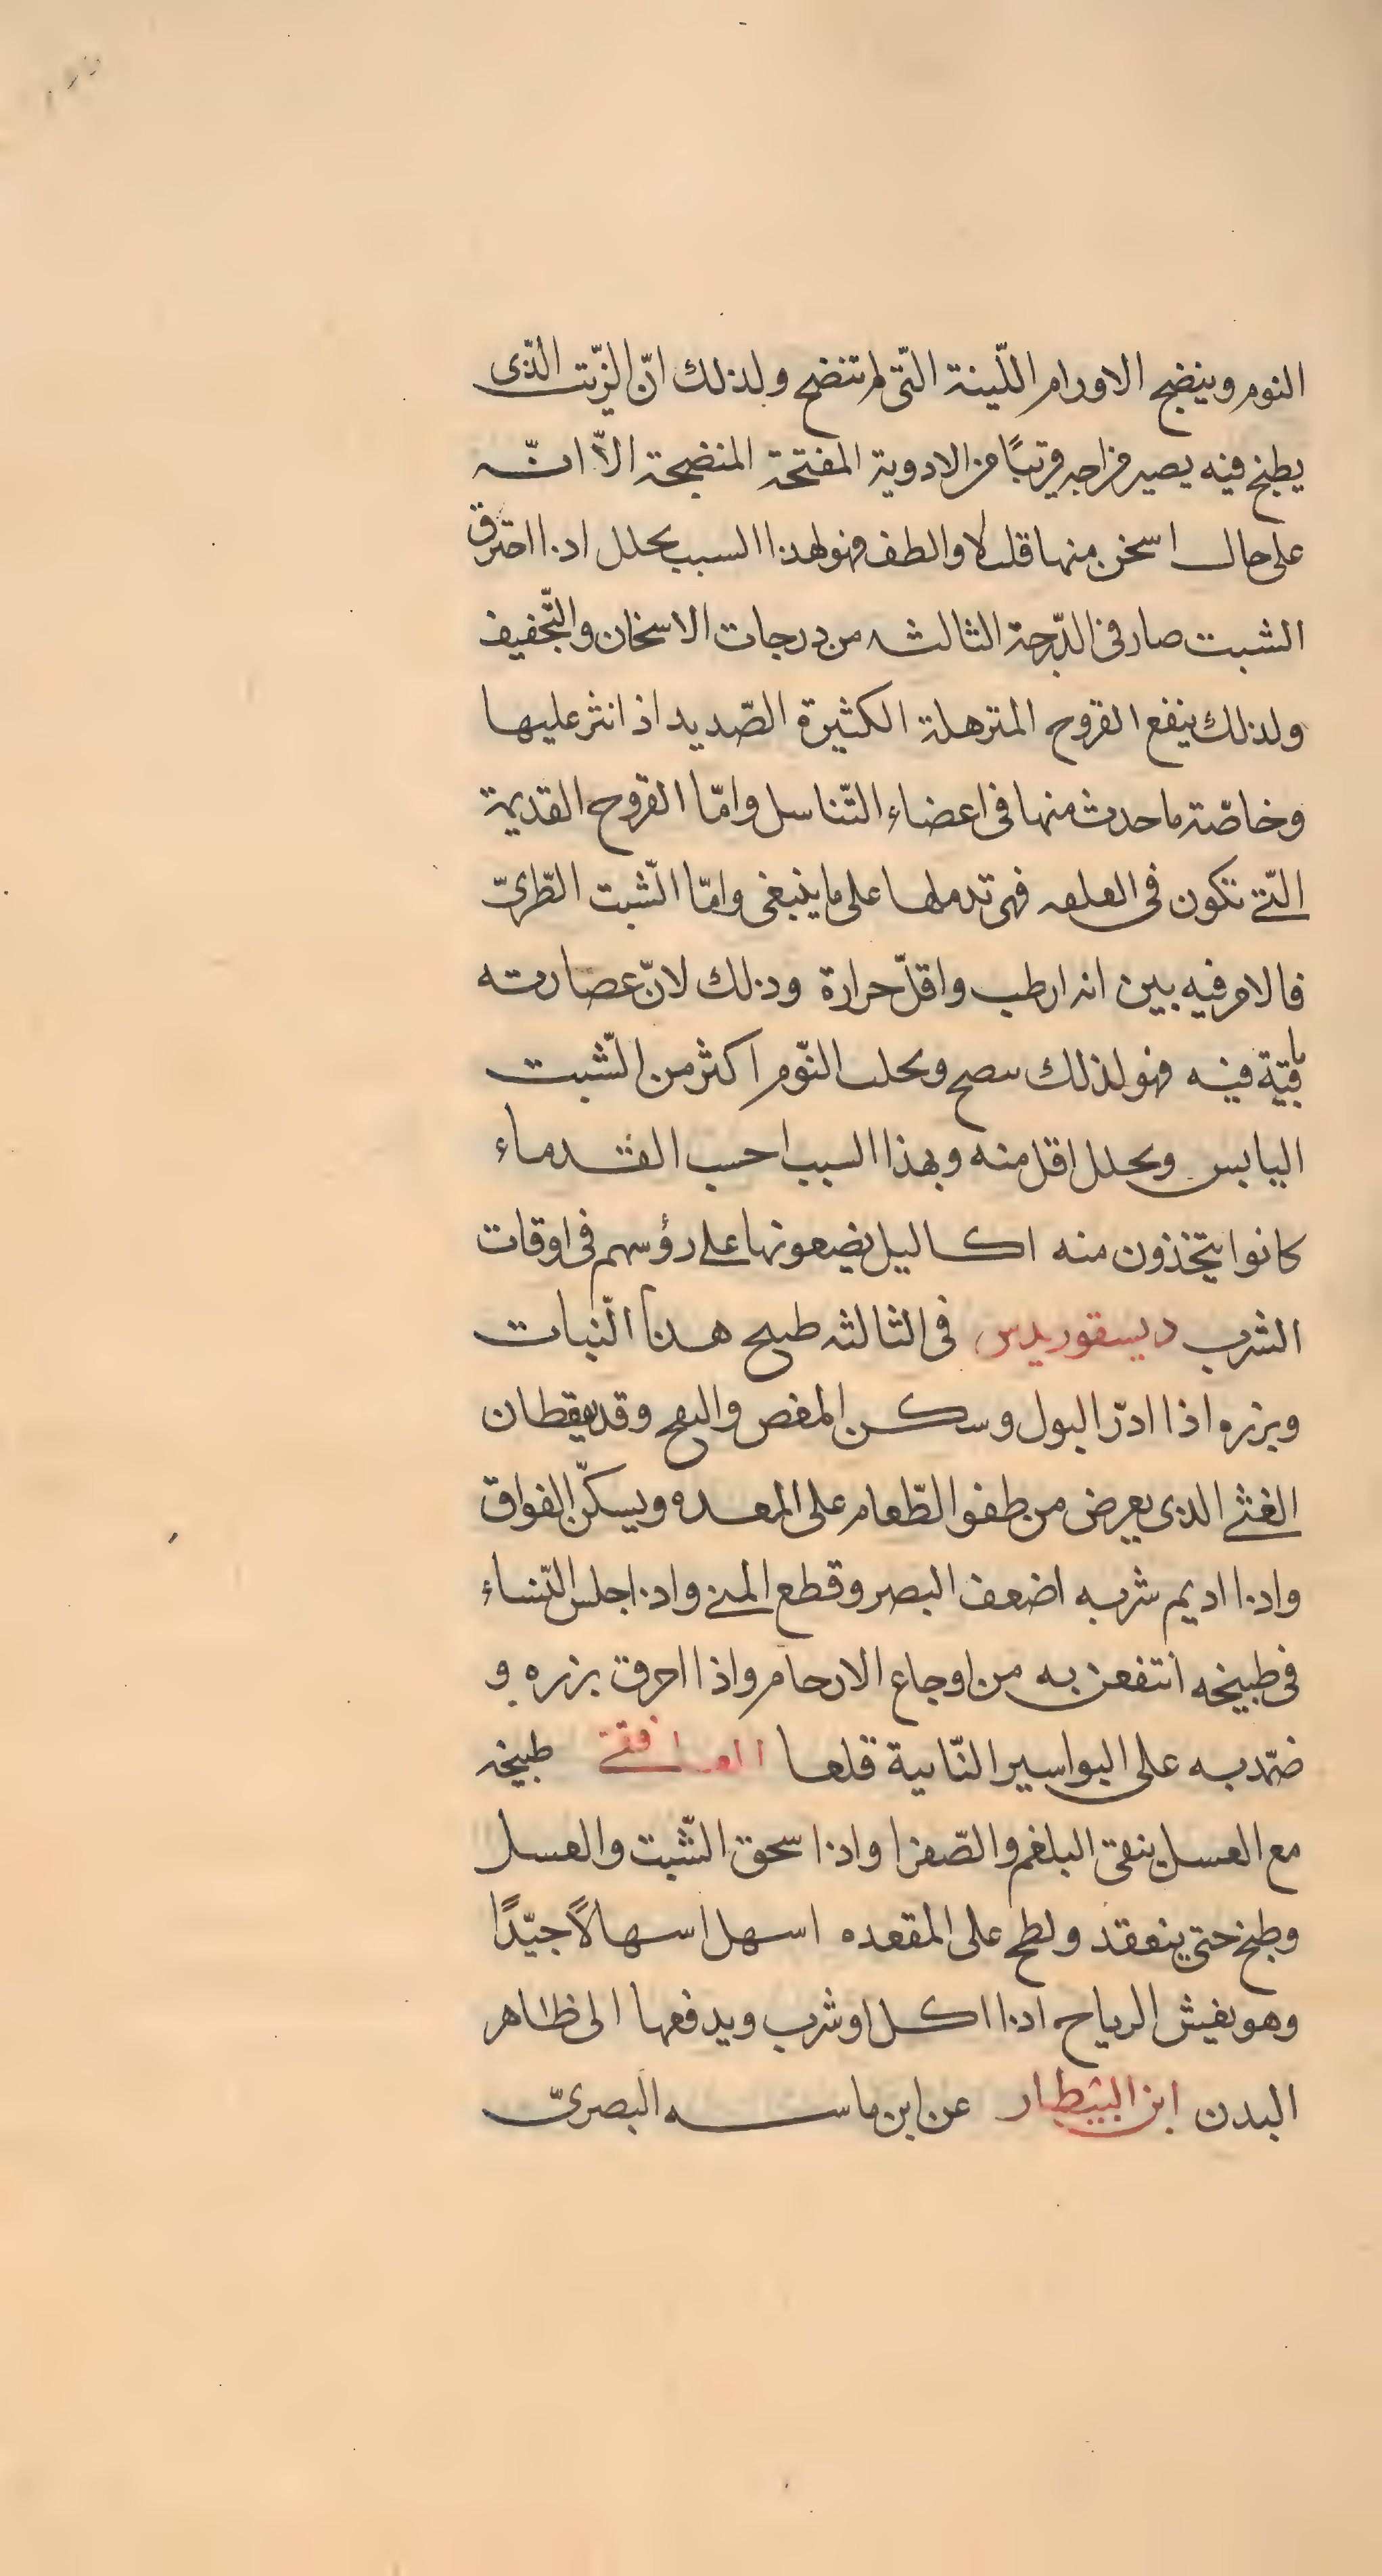 النوم وينضج الاورام اللّينة التّى لم تنضج ولذلك انّ الزّيت الّذى
يطبخ فيه يصير مزاجه قريبًا من الادوية المفتحة المنضجة الاّ انّه
على حال اسخن منها قليلا والطف فهو لهذا السبب يحلل اذا احترق
الشبت صار فى الدّرجة الثالثه من درجات الاسخان والتّجفيف
ولذلك ينفع القروح المترهلة الكثيرة الصّديد اذ انثر عليها
وخاصّة ما حدث منها فى اعضاء التّناسل وامّا القروح القديمة
التّى تكون فى العلفه فهى تدملها على ما ينبغى وامّا الشّبت الطّرىّ
فالامر فيه بين انه ارطب واقلّ حرارة وذلك لانّ عصارته
باقيّة فيه فهو لذلك ىىصح وىحلب النّوم اكثر من الشّبت
اليابس ويحلل اقل منه وبهذا السبب احسب القدماء
كانوا يتخذون منه اكاليل يضعونها على رؤسهم فى اوقات
الشرب ديسقوريدس فى الثالثه طبيح هذا النّبات
وبزره اذا ادرّ البول وسكن المغص والىفح وقد يقطان
الغثى الذى يعرض من طفو الطّعام على المعده ويسكّن الفواق
واذا اديم شربه اضعف البصر وقطع المنى واذا جلس النّساء
فى طبيخه انتفعن به من اوجاع الارحام واذا احرق بزره و
ضمّد به على البواسير النّاىية قلعها الغافقى طبيخه
مع العسل ينقى البلغم والصّفرا واذا سحق الشّبت والعسل
وطبخ حتى ينعقد ولطح على المقعده اسهل اسهالاً جيّدًا
وهو يفيش الرياح اذا اكل او شرب ويدفعها الى ظاهر
البدن ابن البيطار عن ابن ماسه البصرىّ